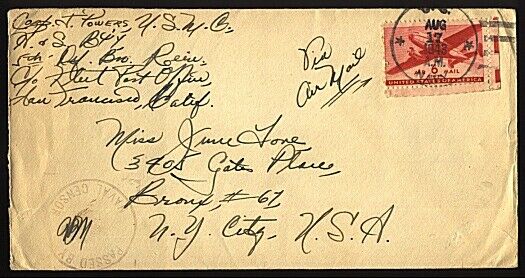 Corp. J. Powers, U.S.M.C.
H. & S. Btry
Def. Bn. Rein.
C/o Fleet Post Office,
San Francisco, Calif.
Via
Air Mail
AUG
17
1943
A.M.
AIR MAIL
UNITED STATES OF AMERICA
Miss June Lore
3405 Gates Place,
Bronx, #67
N.Y. City, U.S.A.
PASSED BY
NAVAL CENSOR